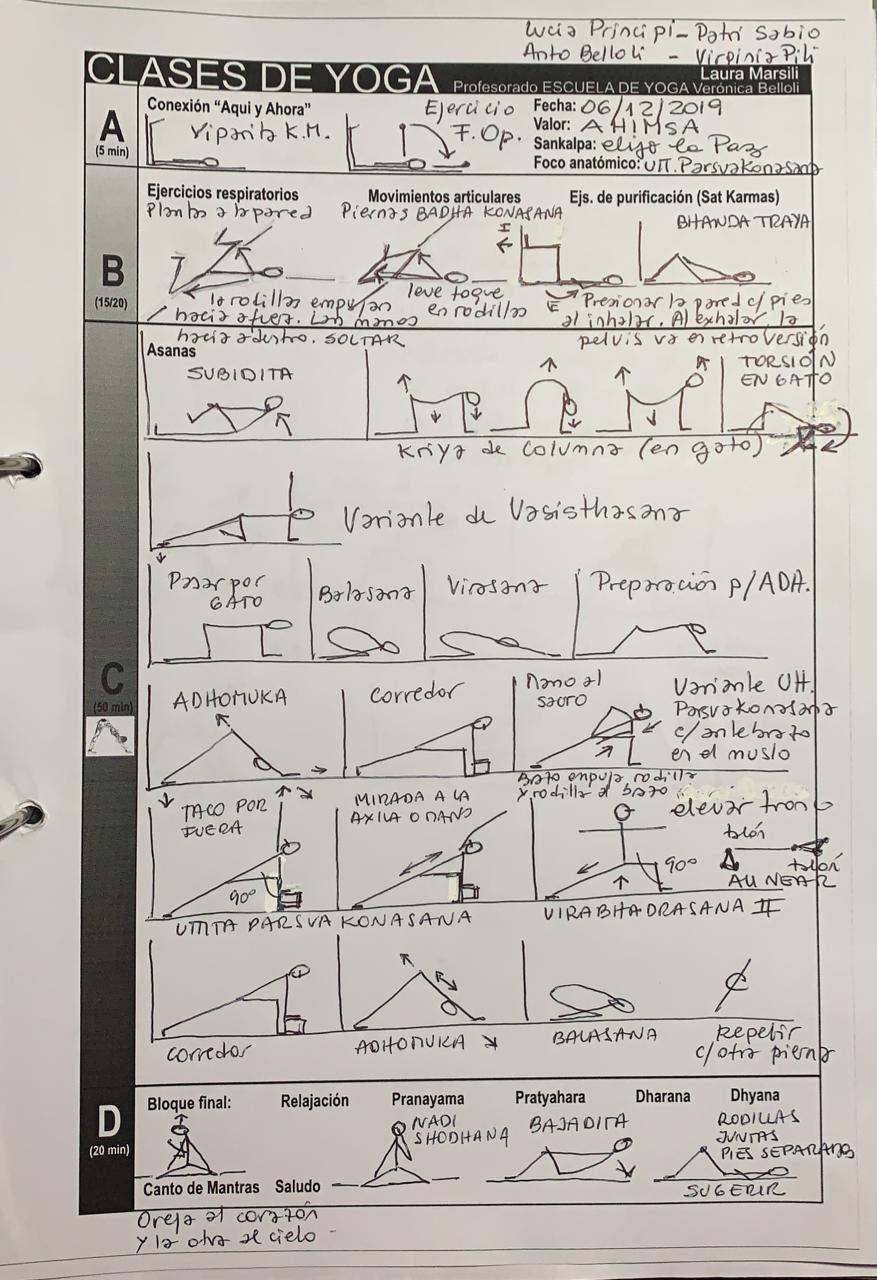 Lucia Principi - Patri Sabio
Anto Belloli - Virginia Pili
CLASES DE YOGA
Laura Marsili
Profesorado ESCUELA DE YOGA Verónica Belloli
A
(5 min)
Conexión "Aqui y Ahora"
Viparita K.M.
Ejercicio
F. Op.
Fecha: 06/12/2019
Valor: AHIMSA
Sankalpa: elijo la Paz
Foco anatómico: UTT. Parsvakonasana
B
(15/20)
Ejercicios respiratorios
Movimientos articulares
Ejs. de purificación (Sat Karmas)
Planta a la pared
Piernas BADHA KONASANA
I
BHANDA TRAYA
la rodillas empujan
hacia afuera. Las manos
hacia adentro. SOLTAR
leve toque
en rodillas
E
Presionar la pared c/ pies
al inhalar. Al exhalar, la
pelvis va en retroversión
C
(50 min)
Asanas
SUBIDITA
TORSIÓN
EN GATO
Kriya de columna (en gato)
Variante de Vasisthasana
Pasar por
GATO
Balasana
Virasana
Preparación p/ADH.
ADHOMUKA
Corredor
Mano al
sacro
Variante UTT.
Parsvakonasana
c/antebrazo
en el muslo
Brazo empuja rodilla
y rodilla al brazo
TACO POR
FUERA
MIRADA A LA
AXILA O MANO
elevar tronco
talón
talón
ALINEAR
90°
90°
UTTITA PARSVA KONASANA
VIRABHADRASANA II
Corredor
ADHOMUKA
BALASANA
Repetir
c/otra pierna
D
(20 min)
Bloque final:
Relajación
Pranayama
Pratyahara
Dharana
Dhyana
NADI
SHODHANA
BAJADITA
RODILLAS
JUNTAS
PIES SEPARADOS
Canto de Mantras
Saludo
SUGERIR
Oreja al corazón
y la otra al cielo -